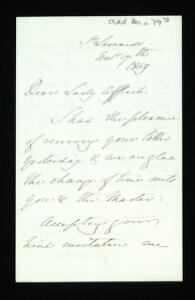 Add Ms c 79 
St Leonards
Nov 9th
1859
Dear Lady Affleck
I had the pleasure
of receiving your letter
yesterday & we are glad
the change of time suits
you & the Master.
Accepting your
kind invitation we